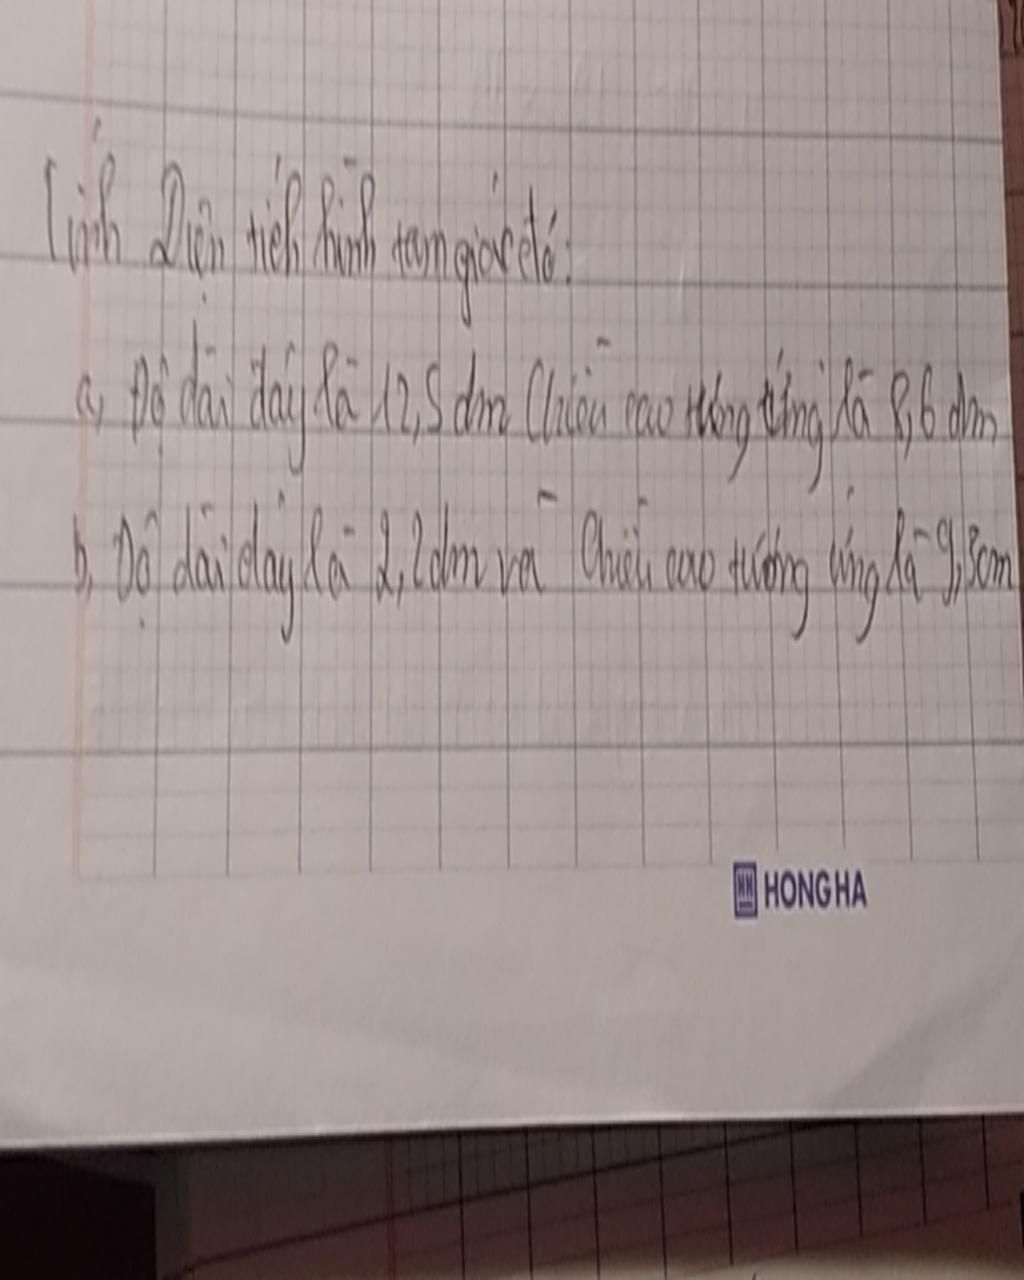 Tính Diện tích hình tam giác đó:
a, Độ dài đáy là 12,5 dm Chiều cao tương ứng là 8,6 dm
b, Độ dài đáy là 2,2dm và Chiều cao tương ứng là 9,3cm
HONG HA